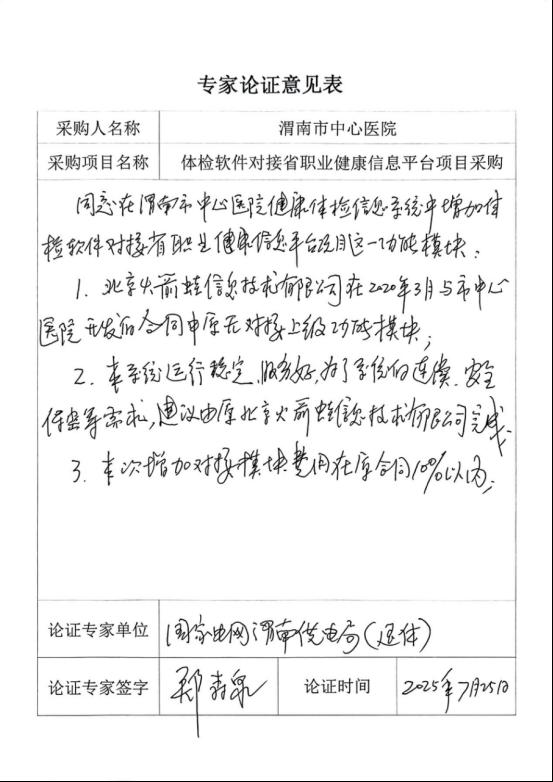 专家论证意见表
采购人名称 渭南市中心医院
采购项目名称 体检软件对接省职业健康信息平台项目采购
同意在渭南市中心医院健康体检信息系统中增加体
检软件对接省职业健康信息平台项目这一功能模块：
1. 北京火箭蛙信息技术有限公司在2020年3月与市中心
医院开发的合同中原无对接上级功能模块；
2. 本系统运行稳定，服务好，为了系统的连续、安全
保密等需求，建议由原北京火箭蛙信息技术有限公司完成；
3. 本次增加对接模块费用在原合同10%以内；
论证专家单位 国家电网渭南供电局（退休）
论证专家签字 郑 论证时间 2025年7月25日